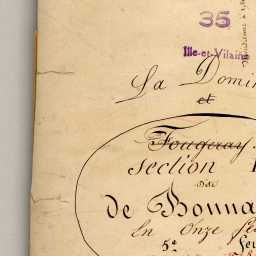 35
Ille-et-Vilaine
La Domin
et
Fougeray
Section
dite
de Bonna
En Onze
5e